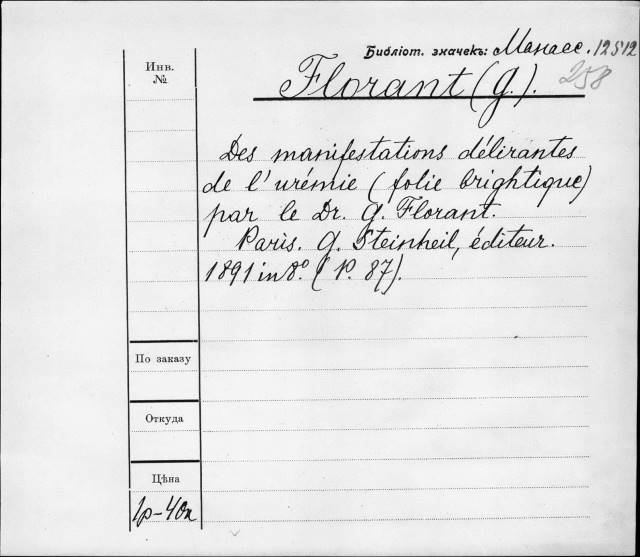 Библіот. значекъ: Манасс. 12512
258
Florant (G.).
Инв.
№
Des manifestations délirantes
de l'urémie (folie brightique)
par le Dr. G. Florant.
Paris. G. Steinheil, éditeur.
1891 in 8º. (P. 87).
По заказу
Откуда
Цѣна
1р-40к